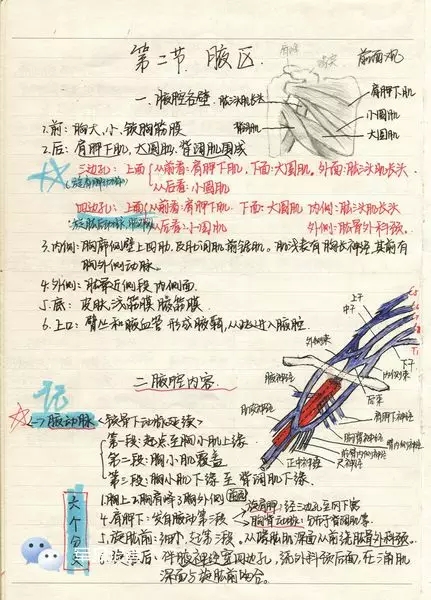 第二节 腋区
前面观
肩胛下肌
小圆肌
大圆肌
一、腋腔各壁
肱三头肌长头
背阔肌
1.前:胸大、小、锁胸筋膜
2.后:肩胛下肌、大圆肌、背阔肌围成
三边孔:上面 从前看:肩胛下肌,下面:大圆肌,外面:肱三头肌长头
从后看:小圆肌
四边孔:上面 从前看:肩胛下肌,下面:大圆肌 内侧:肱三头肌长头
从后看:小圆肌 外侧:肱骨外科颈
3.内侧:胸廓侧壁上四肋,及肋间肌前锯肌。肌浅表有胸长神经,其前有
胸外侧动脉。
4.外侧:肱骨近侧段内侧面
5.底:皮肤、浅筋膜 腋筋膜
6.上口:臂丛和腋血管形成腋鞘,从此进入腋腔
上干
中干
C5
T1
下干
外侧束
内侧束
后束
腋神经
肌皮神经
肩胛下神经
胸背神经
臂内侧皮神经
前臂内侧皮神经
正中神经
尺神经
二、腋腔内容
记
<一>腋动脉<锁骨下动脉延续>
第一段:起点至胸小肌上缘
第二段:胸小肌覆盖
第三段:胸小肌下缘至背阔肌下缘
六个分支
1.胸上 2.胸肩峰 3.胸外侧
4.肩胛下:发自腋动第三段
旋肩胛:经三边孔至冈下窝
胸背动脉
5.旋肱前:细小,起第三段,从喙肱肌深面前绕肱骨外科颈
6.旋肱后:伴腋神经穿四边孔,绕外科颈后面,在三角肌
深面与旋肱前吻合。